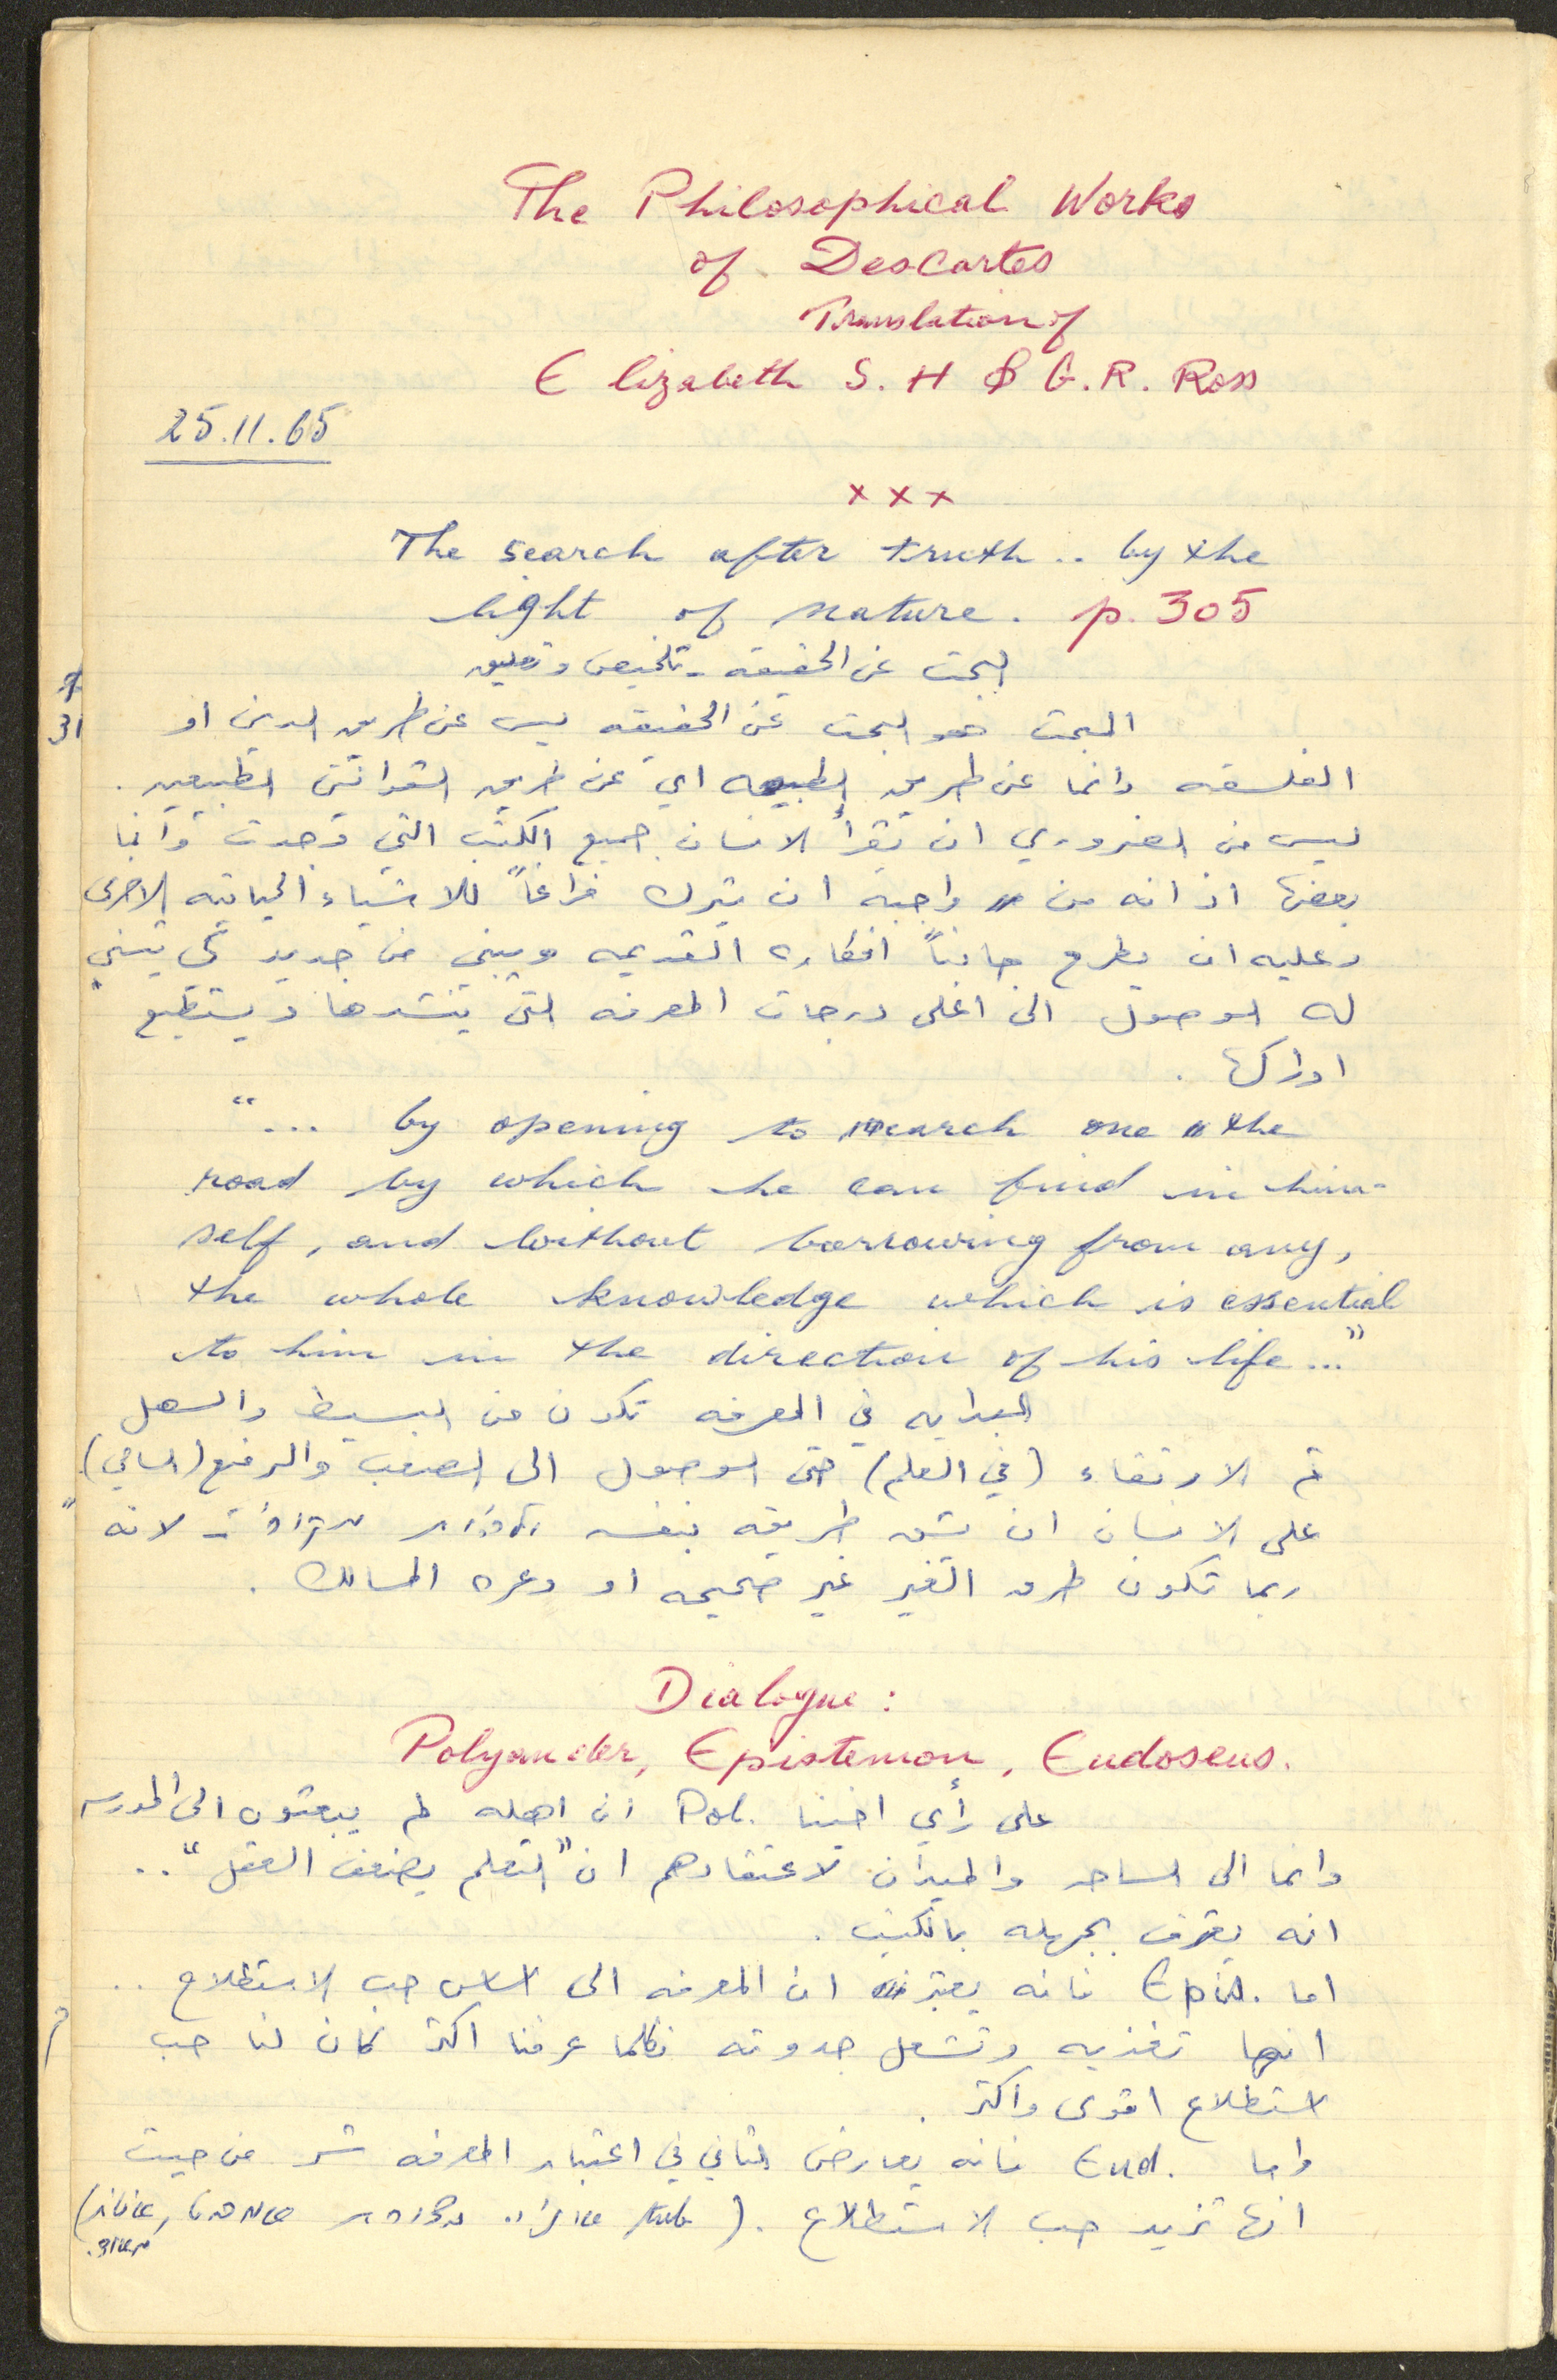 The Philosophical Works
of Descartes
Translation of
Elizabeth S. H & G. R. Ross
25.11.65
x x x
The search after truth .. by the
light of nature. p. 305
البحث عن الحقيقه - تلخيص وتعليق
البحث هو البحث عن الحقيقه ليس عن طريق الدين او
الفلسفه وانما عن طريق الطبيعه اي عن طريق القوانين الطبيعيه .
ليس من الضروري ان تقرأ الانسان جميع الكتب التي وجدت وانما
بعضها اذ انه من واجبه ان يترك فراغاً للاشياء الحياتيه الاخرى
وعليه ان يطرح جانباً افكاره القديمه ويبني من جديد كي يتسنى
له الوصول الى اعلى درجات المعرفه التي ينشدها ويستطيع
ادراكها .
"... by opening to each one the
road by which he can find in him-
self, and without borrowing from any,
the whole knowledge which is essential
to him in the direction of his life ..."
البدايه في المعرفه تكون من البسيط والسهل
ثم الارتقاء (في العلم) حتى الوصول الى الصعب والرفيع (السامي)
على الانسان ان يشق طريقه بنفسه لانه
ربما تكون طرق الغير غير صحيحه او وعره المسالك .
Dialogue :
Polyander, Epistemon, Eudoseus.
على رأي اخينا Pol. ان اهله لم يبعثوه الى المدرسه
وانما الى الساحه والميدان لاعتقادهم ان "التعلم يضعف العقل" ..
انه يعترف بجهله بالكتب .
اما Epis. فانه يعتبر ان المعرفه الى اساس حب الاستطلاع ..
انها تغذيه وتشعل جدوته فكلما عرفنا اكثر كان لنا حب
استطلاع اقوى واكثر .
واما Eud. فانه يعارض الثاني في اعتبار المعرفه شر من حيث
انها تزيد حب الاستطلاع . (